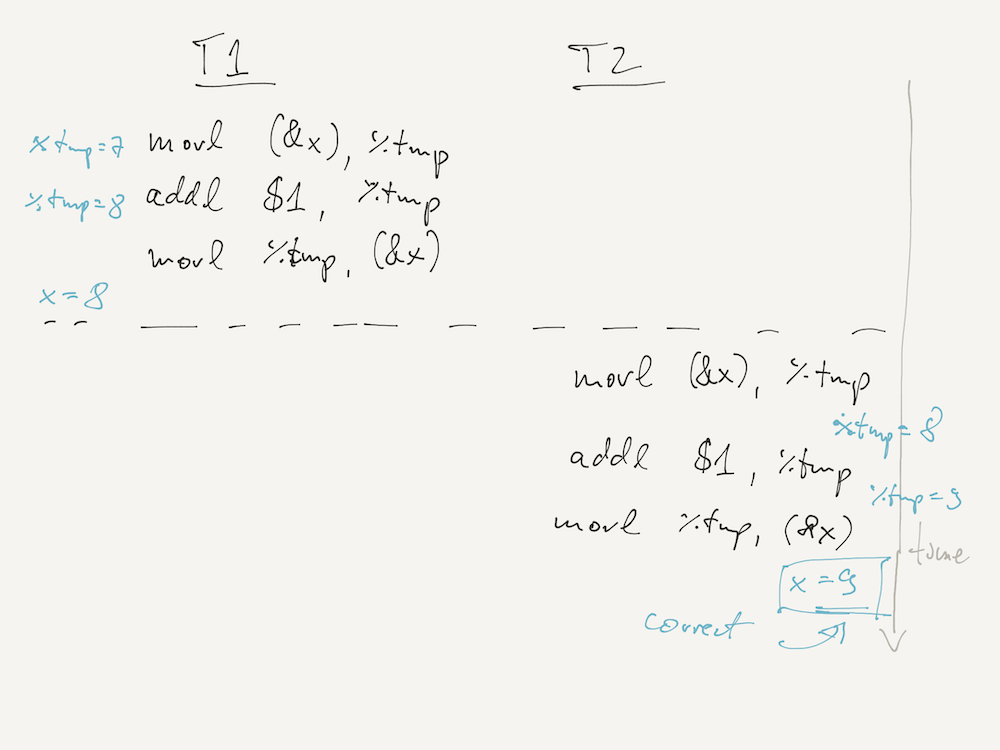 T1 T2
%tmp=7 movl (&x), %tmp
%tmp=8 addl $1, %tmp
movl %tmp, (&x)
x=8
movl (&x), %tmp
%tmp=8
addl $1, %tmp
%tmp=9
movl %tmp, (&x)
time
x=9
correct